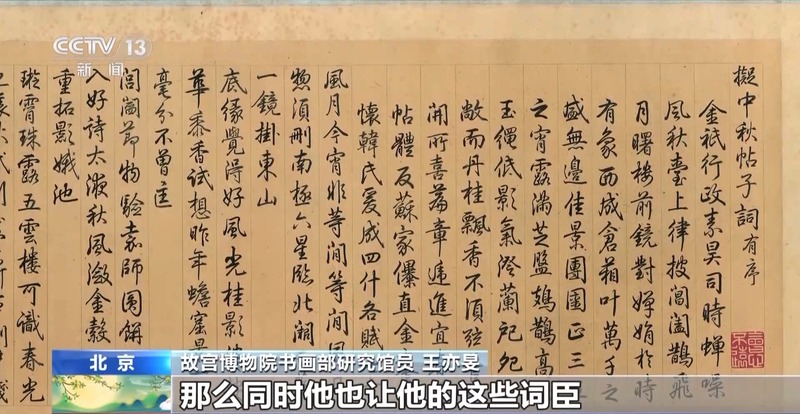 CCTV 13
新闻
擬中秋帖子詞有序
金祇行政素昊司時蟬噪
風秋臺上律披閶闔鵲飛
月曙樓前鏡對嬋娟於時
有象西成倉箱叶萬千之
盛無邊佳景團圞正三
之宵露滿芝盤鳷鵲高
玉繩低影氣澄蘭戺
敞而丹桂飄香不須弦
開所喜篇章遞進宜
帖體及蘇家儤直金
懷韓氏爰成四什各賦
風月今宵非等閒等閒風
愁須刪南極六星臨北闕
一鏡掛東山
底緣覺得好風光桂影
華黍香試想昨年蟾窟
毫分不曾
閶闔節物驗嘉師圓餅
入好詩太液秋風激金
重拓影娥池
璇霄珠露五雲樓可識春光
北京
故宫博物院书画部研究馆员 王亦旻
那么同时他也让他的这些词臣